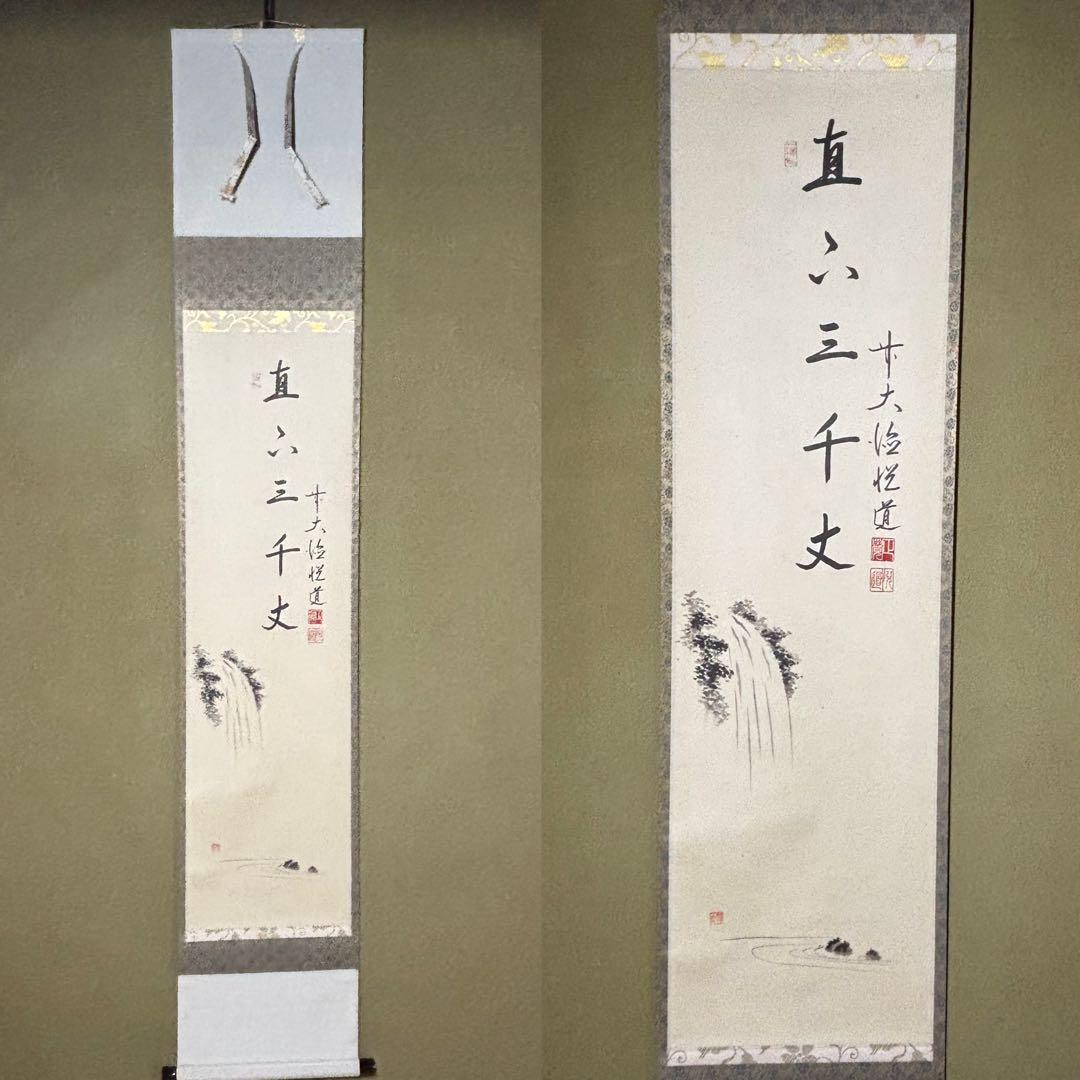 直下三千丈
前大徳悦道
直下三千丈
前大徳悦道